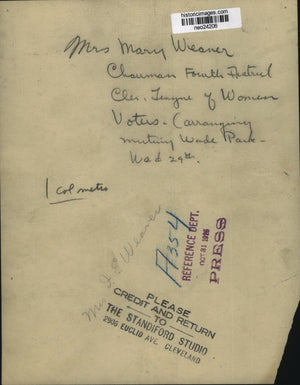 historicimages.com
neo24206
Mrs Mary Weaver
Chairman Fourth District
Clev. League of Women
Voters - (arranging
meeting Wade Park -
Wed 29th.
1 col metro
Mrs I E Weaver
A354
REFERENCE DEPT.
OCT 31 1926
PRESS
PLEASE
CREDIT AND RETURN
TO
THE STANDIFORD STUDIO
2906 EUCLID AVE. CLEVELAND